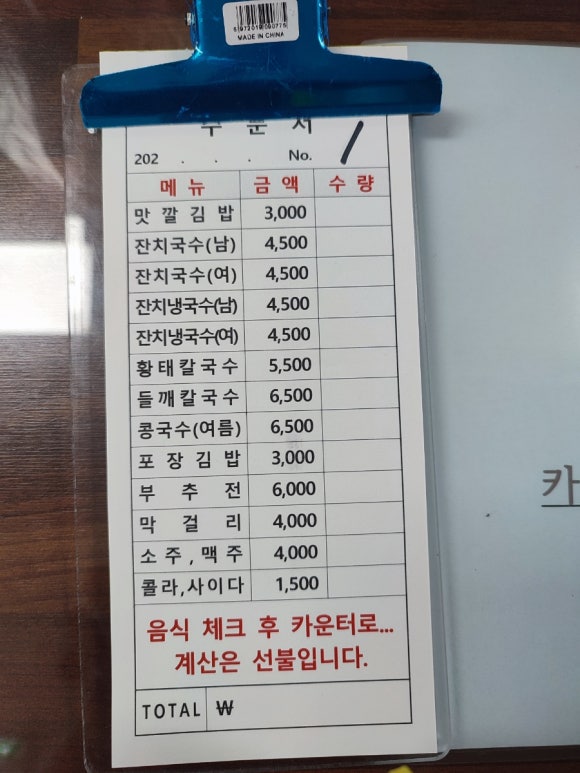 6972019090775
MADE IN CHINA
주 문 서
202 . . . No. 1
메 뉴 금 액 수 량
맛 깔 김 밥 3,000
잔치국수(남) 4,500
잔치국수(여) 4,500
잔치냉국수(남) 4,500
잔치냉국수(여) 4,500
황 태 칼 국 수 5,500
들 깨 칼 국 수 6,500
콩국수(여름) 6,500
포 장 김 밥 3,000
부 추 전 6,000
막 걸 리 4,000
소 주 , 맥 주 4,000
콜라,사이다 1,500
음식 체크 후 카운터로...
계산은 선불입니다.
TOTAL ₩
카